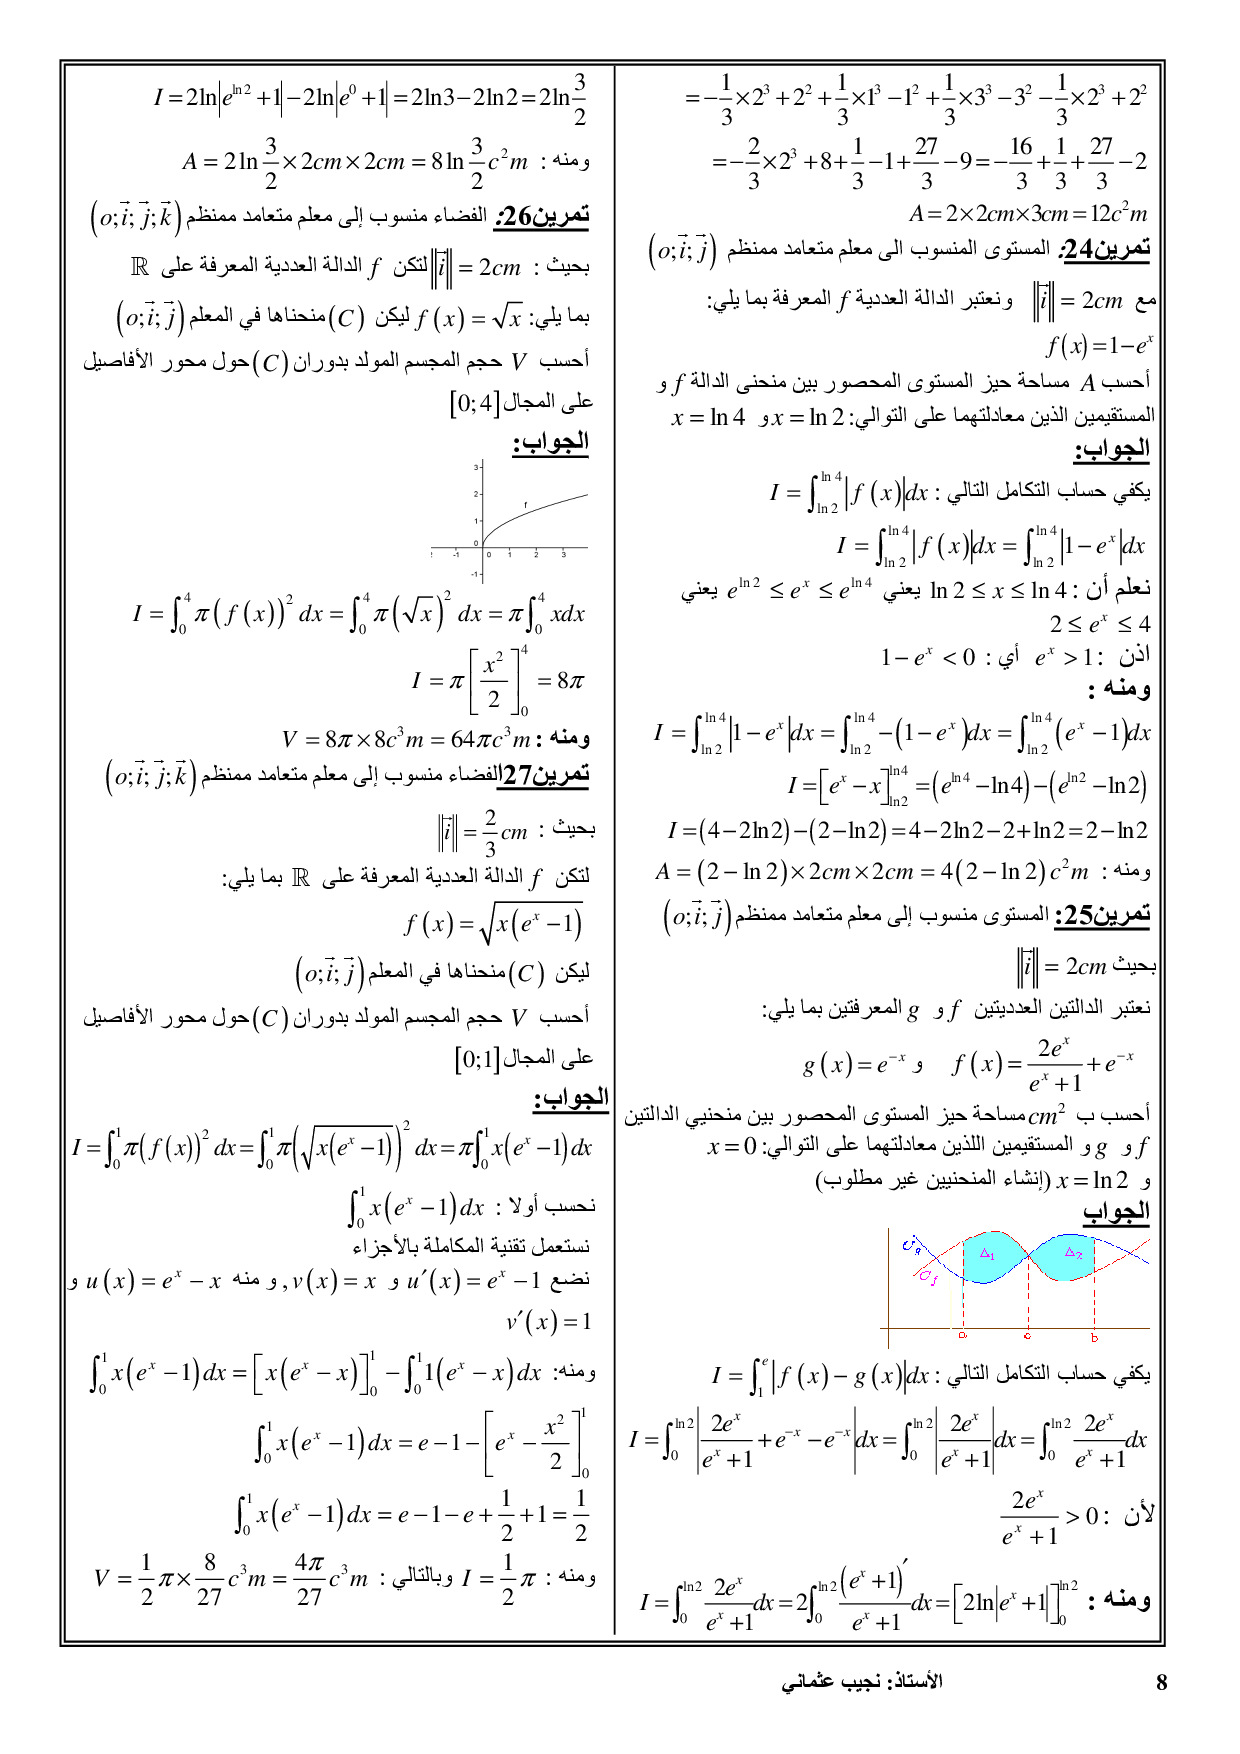 = −1/3 × 2³ + 2² + 1/3 × 1³ − 1² + 1/3 × 3³ − 3² − 1/3 × 2³ + 2²
= −2/3 × 2³ + 8 + 1/3 − 1 + 27/3 − 9 = −16/3 + 1/3 + 27/3 − 2
A = 2 × 2cm × 3cm = 12c²m
تمرين24: المستوى المنسوب الى معلم متعامد ممنظم (o; i⃗; j⃗)
مع ‖i⃗‖ = 2cm ونعتبر الدالة العددية f المعرفة بما يلي:
f(x) = 1 − eˣ
أحسب A مساحة حيز المستوى المحصور بين منحنى الدالة f و
المستقيمين الذين معادلتهما على التوالي: x = ln 2 و x = ln 4
الجواب:
يكفي حساب التكامل التالي : I = ∫_{ln 2}^{ln 4} |f(x)| dx
I = ∫_{ln 2}^{ln 4} |f(x)| dx = ∫_{ln 2}^{ln 4} |1 − eˣ| dx
نعلم أن : ln 2 ≤ x ≤ ln 4 يعني e^{ln 2} ≤ eˣ ≤ e^{ln 4} يعني
2 ≤ eˣ ≤ 4
اذن : eˣ > 1 أي : 1 − eˣ < 0
ومنه :
I = ∫_{ln 2}^{ln 4} |1 − eˣ| dx = ∫_{ln 2}^{ln 4} −(1 − eˣ) dx = ∫_{ln 2}^{ln 4} (eˣ − 1) dx
I = [eˣ − x]_{ln2}^{ln4} = (e^{ln4} − ln4) − (e^{ln2} − ln2)
I = (4 − 2ln2) − (2 − ln2) = 4 − 2ln2 − 2 + ln2 = 2 − ln2
ومنه : A = (2 − ln 2) × 2cm × 2cm = 4(2 − ln 2) c²m
تمرين25: المستوى منسوب إلى معلم متعامد ممنظم (o; i⃗; j⃗)
بحيث ‖i⃗‖ = 2cm
نعتبر الدالتين العدديتين f و g المعرفتين بما يلي:
f(x) = 2eˣ/(eˣ + 1) + e⁻ˣ و g(x) = e⁻ˣ
أحسب ب cm² مساحة حيز المستوى المحصور بين منحنيي الدالتين
f و g و المستقيمين اللذين معادلتهما على التوالي: x = 0
و x = ln 2 (إنشاء المنحنيين غير مطلوب)
الجواب
C_g Δ₁ Δ₂
C_f
a c b
يكفي حساب التكامل التالي : I = ∫_{1}^{e} |f(x) − g(x)| dx
I = ∫_{0}^{ln 2} |2eˣ/(eˣ + 1) + e⁻ˣ − e⁻ˣ| dx = ∫_{0}^{ln 2} |2eˣ/(eˣ + 1)| dx = ∫_{0}^{ln 2} 2eˣ/(eˣ + 1) dx
لأن : 2eˣ/(eˣ + 1) > 0
ومنه : I = ∫_{0}^{ln2} 2eˣ/(eˣ + 1) dx = 2∫_{0}^{ln 2} (eˣ + 1)′/(eˣ + 1) dx = [2ln|eˣ + 1|]_{0}^{ln 2}
I = 2ln|e^{ln 2} + 1| − 2ln|e⁰ + 1| = 2ln3 − 2ln2 = 2ln 3/2
ومنه : A = 2 ln 3/2 × 2cm × 2cm = 8 ln 3/2 c²m
تمرين26: الفضاء منسوب إلى معلم متعامد ممنظم (o; i⃗; j⃗; k⃗)
بحيث : ‖i⃗‖ = 2cm لتكن f الدالة العددية المعرفة على ℝ
بما يلي: f(x) = √x ليكن (C) منحناها في المعلم (o; i⃗; j⃗)
أحسب V حجم المجسم المولد بدوران (C) حول محور الأفاصيل
على المجال [0; 4]
الجواب:
3
2
f
1
0
-1 0 1 2 3
-1
I = ∫_{0}^{4} π(f(x))² dx = ∫_{0}^{4} π(√x)² dx = π∫_{0}^{4} xdx
I = π[x²/2]_{0}^{4} = 8π
ومنه : V = 8π × 8c³m = 64πc³m
تمرين27الفضاء منسوب إلى معلم متعامد ممنظم (o; i⃗; j⃗; k⃗)
بحيث : ‖i⃗‖ = 2/3 cm
لتكن f الدالة العددية المعرفة على ℝ بما يلي:
f(x) = √(x(eˣ − 1))
ليكن (C) منحناها في المعلم (o; i⃗; j⃗)
أحسب V حجم المجسم المولد بدوران (C) حول محور الأفاصيل
على المجال [0;1]
الجواب:
I = ∫_{0}^{1} π(f(x))² dx = ∫_{0}^{1} π(√(x(eˣ − 1)))² dx = π∫_{0}^{1} x(eˣ − 1) dx
نحسب أولا : ∫_{0}^{1} x(eˣ − 1) dx
نستعمل تقنية المكاملة بالأجزاء
نضع u′(x) = eˣ − 1 و v(x) = x , و منه u(x) = eˣ − x و
v′(x) = 1
ومنه: ∫_{0}^{1} x(eˣ − 1) dx = [x(eˣ − x)]_{0}^{1} − ∫_{0}^{1} 1(eˣ − x) dx
∫_{0}^{1} x(eˣ − 1) dx = e − 1 − [eˣ − x²/2]_{0}^{1}
∫_{0}^{1} x(eˣ − 1) dx = e − 1 − e + 1/2 + 1 = 1/2
ومنه : I = 1/2 π وبالتالي : V = 1/2 π × 8/27 c³m = 4π/27 c³m
الأستاذ: نجيب عثماني
8